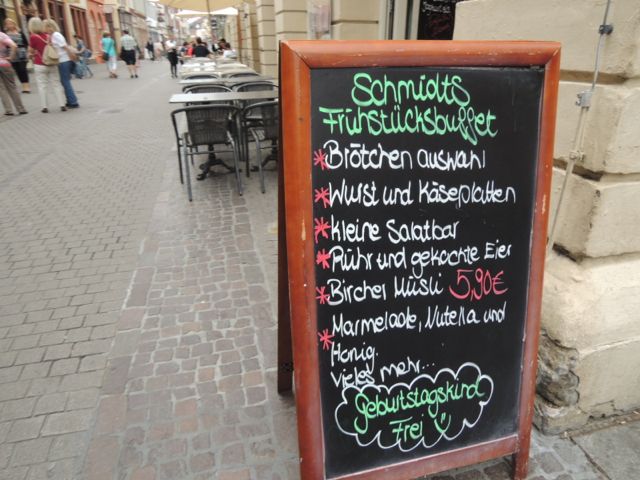 Schmidts
Frühstücksbuffet
* Brötchen auswahl
* Wurst und Käseplatten
* Kleine Salatbar
* Rühr und gekochte Eier
* Bircher Müsli 5,90€
* Marmelade, Nutella und
Honig.
Vieles mehr...
Geburtstagskind
Frei